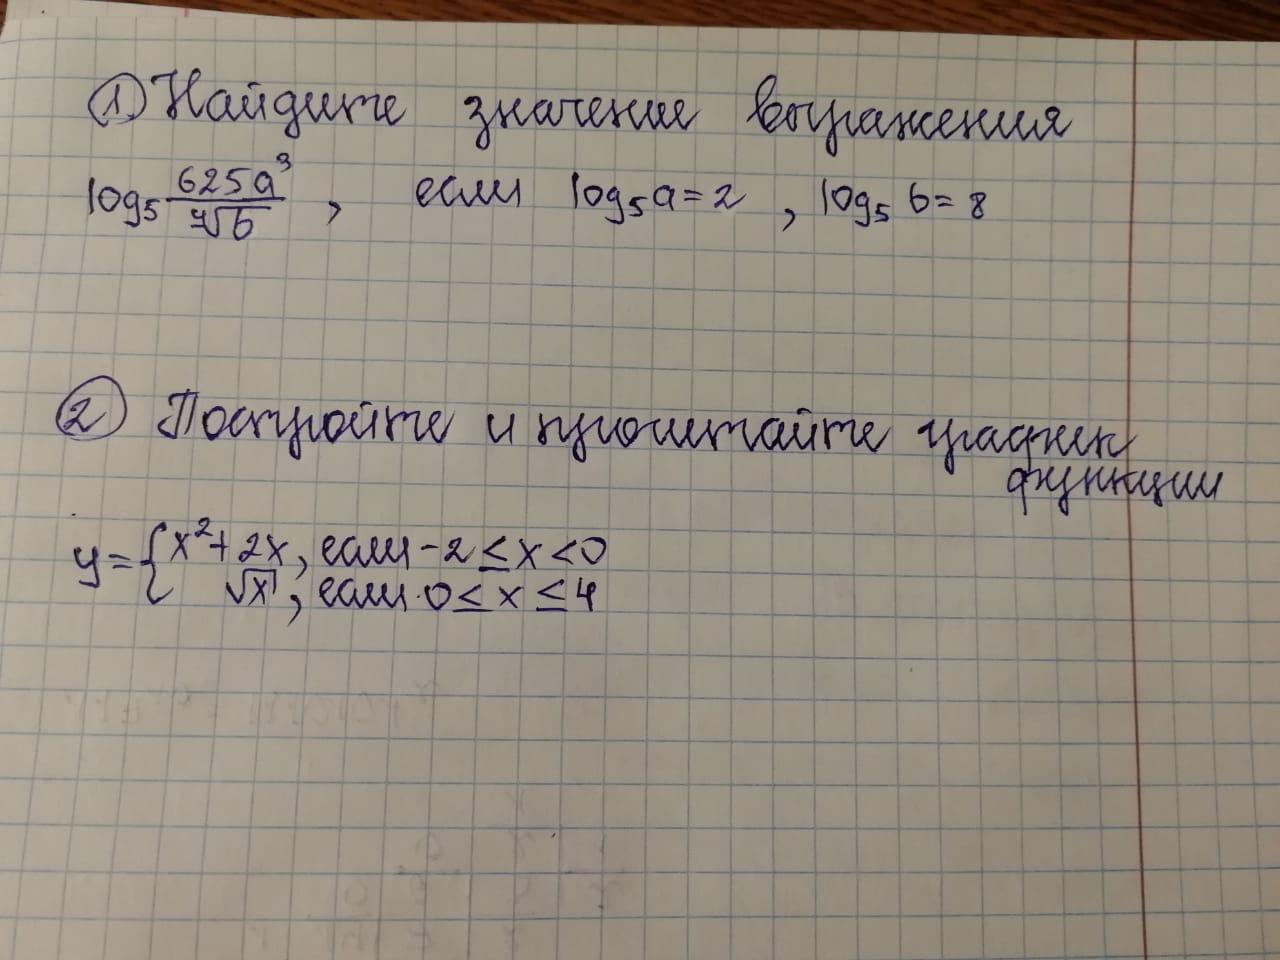 ① Найдите значение выражения
log₅ 625a³/∜b, если log₅a = 2, log₅ b = 8
② Постройте и прочитайте график
функции
y = { x² + 2x, если -2 ≤ x < 0
√x, если 0 ≤ x ≤ 4